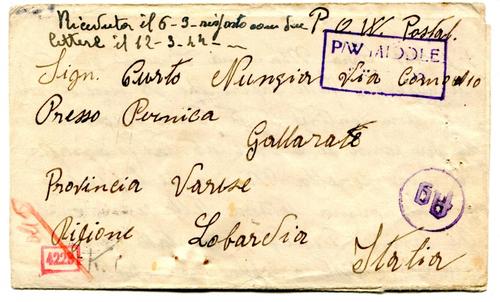 Ricevuta il 6-3- risposto con due
lettere il 12-3-44-
P.O.W. Postal.
P/W MIDDLE
Sign. Curto Nunzia Via
Presso Pernica
Gallarate
Provincia Varese
Rigione Lobardia
Italia
4229
K.